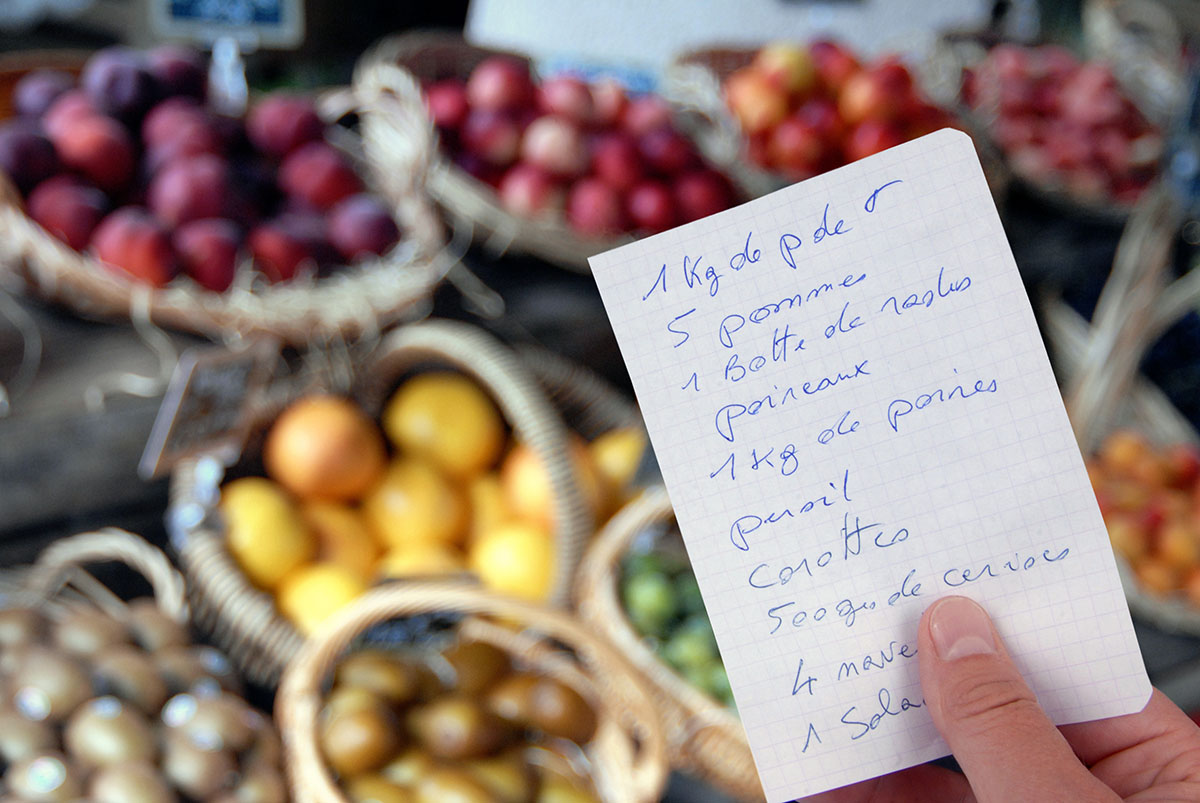 1 Kg de p de r
5 pommes
1 Botte de radis
poireaux
1 Kg de poires
persil
carottes
500grs de cerises
4 nave
1 Sala